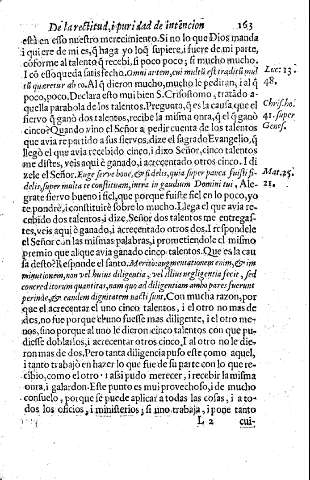 De la restitud, i puridad de intencion 163
está en esso nuestro merecimiento. Si no lo que Dios manda
i quiere de mi es, q̃ haga yo loq̃ supiere, i fuere de mi parte,
coforme al talento q̃ recebi, si poco poco; si mucho mucho.
I cõ esso queda satisfecho. Omni autem, cui multũ est traditũ mul
tũ quæretur ab eo. Al q̃ dieron mucho, mucho le pediran, i al q̃
poco, poco. Declara esto mui bien S. Crisostomo, tratãdo a-
quella parabola de los talentos. Pregunta, q̃ es la causa que el
siervo q̃ ganò dos talentos, recibe la misma onra, q̃ el q̃ ganò
cinco? Quando vino el Señor a pedir cuenta de los talentos
que avia repartido a sus siervos, dize el sagrado Evangelio, q̃
llegò el que avia recebido cinco, i dixo Señor, cinco talentos
me distes, veis aqui è ganado, i acrecentado otros cinco. I di
zele el Señor. Euge serve bone, & fidelis, quia super pauca fuisti fi-
delis, super multa te constituam, intra in gaudium Domini tui, Ale-
grate siervo bueno i fiel, que porque fuiste fiel en lo poco, yo
te pondrè, i constituirè sobre lo mucho. Llega el que avia re-
cebido dos talentos, i dize, Señor dos talentos me entregas-
tes, veis aqui è ganado, i acrecentado otros dos. I respondele
el Señor con las mismas palabras, i prometiendole el mismo
premio que al que avia ganado cinco talentos. Que es la cau
sa desto? Responde el santo. Meritò: augmentationem enim, & im
minutionem, non vel huius diligentia, vel illius negligentia fecit, sed
concreditorum quantitas, nam quo ad diligentiam ambo pares fuerunt
perinde, & eandem dignitatem nacti sunt. Con mucha razon, por
que el acrecentar el uno cinco talentos, i el otro no mas de
dos, no fue porque el uno fuesse mas diligente, i el otro me-
nos, sino porque al uno le dieron cinco talentos con que pu-
diesse doblarlos, i acrecentar otros cinco, I al otro no le die-
ron mas de dos. Pero tanta diligencia puso este como aquel,
i tanto trabajò en hazer lo que fue de su parte con lo que re-
cibio, como el otro: i assi pudo merecer, i recebir la misma
onra, i galardon. Este punto es mui provechoso, i de mucho
consuelo, porque se puede aplicar a todas las cosas, i a to-
dos los oficios, i ministerios; si uno trabaja, i pone tanto
L 2 cui-
Luc. 13.
48.
Chrysho.
41. super
Genes.
Mat. 25.
21.